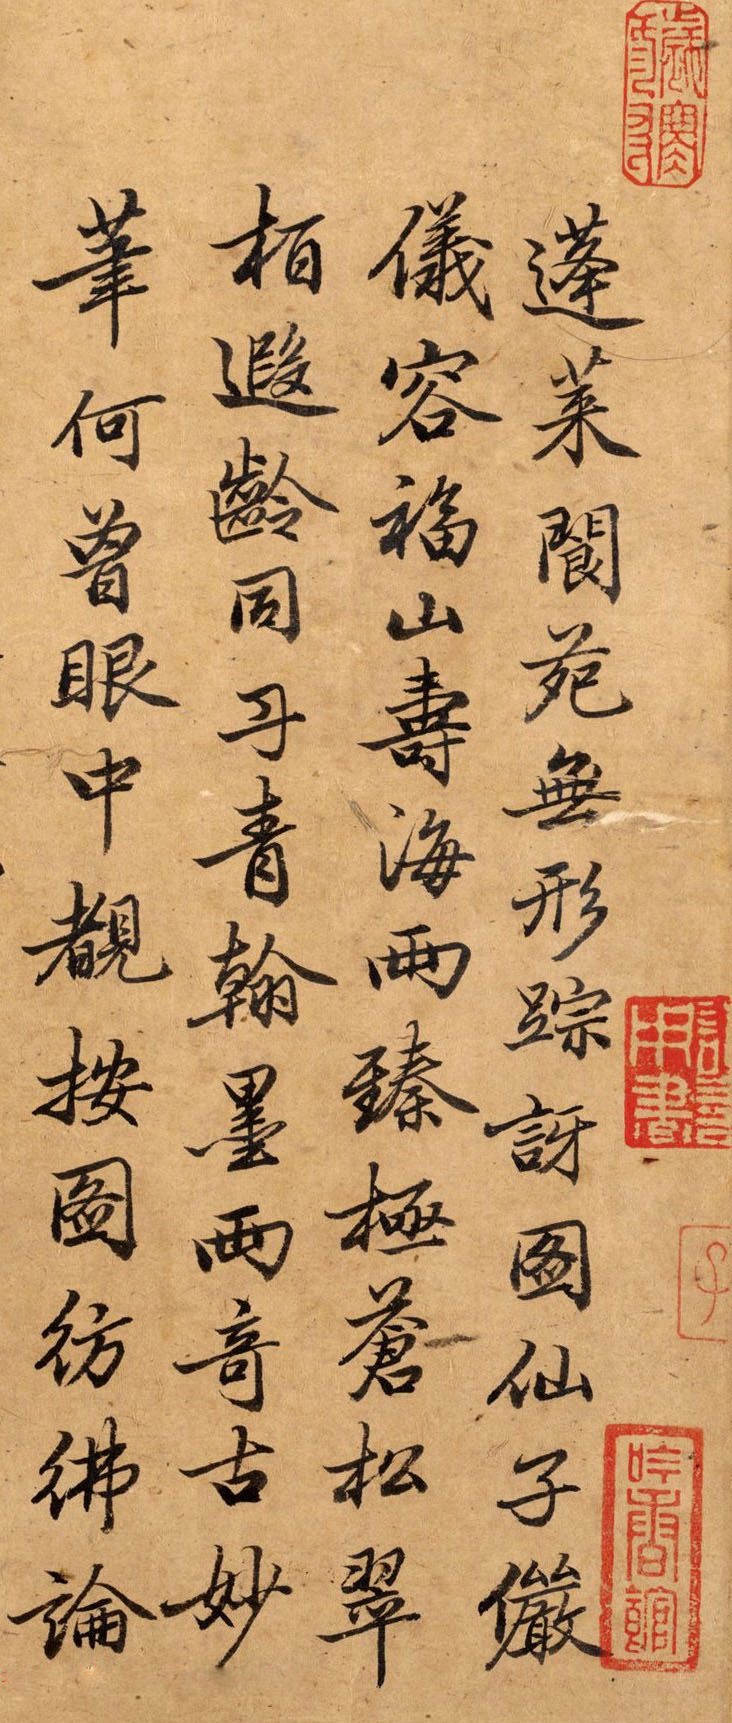 蓬萊閬苑無形踪訝图仙子儼
儀容福山壽海兩臻極蒼松翠
柏遐齡同丹青翰墨兩奇古妙
筆何曾眼中覩按圖彷彿論
吟香館